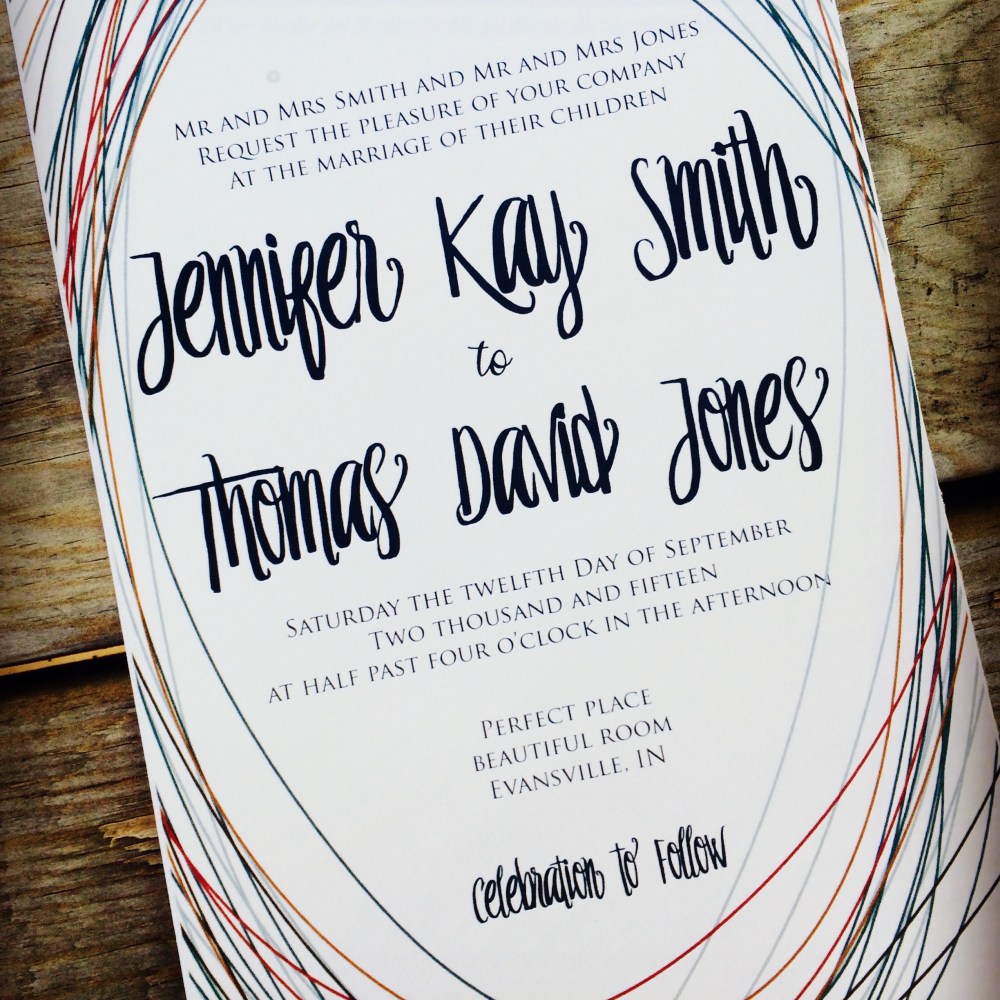 Mr and Mrs Smith and Mr and Mrs Jones
Request the pleasure of your company
At the marriage of their children
Jennifer Kay Smith
to
Thomas David Jones
Saturday the twelfth Day of September
Two thousand and fifteen
at half past four o'clock in the afternoon
Perfect place
beautiful room
Evansville, IN
celebration to Follow